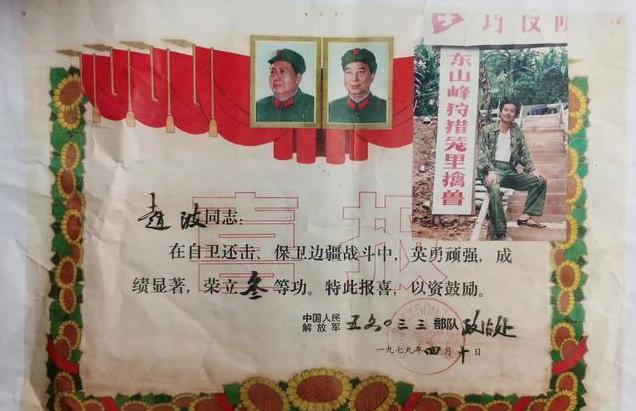 东山峰狩猎笼里擒兽
喜报
赵波同志:
在自卫还击、保卫边疆战斗中,英勇顽强,成
绩显著,荣立叁等功。特此报喜,以资鼓励。
中国人民
解放军
五三〇三三部队政治处
一九七九年四月十日